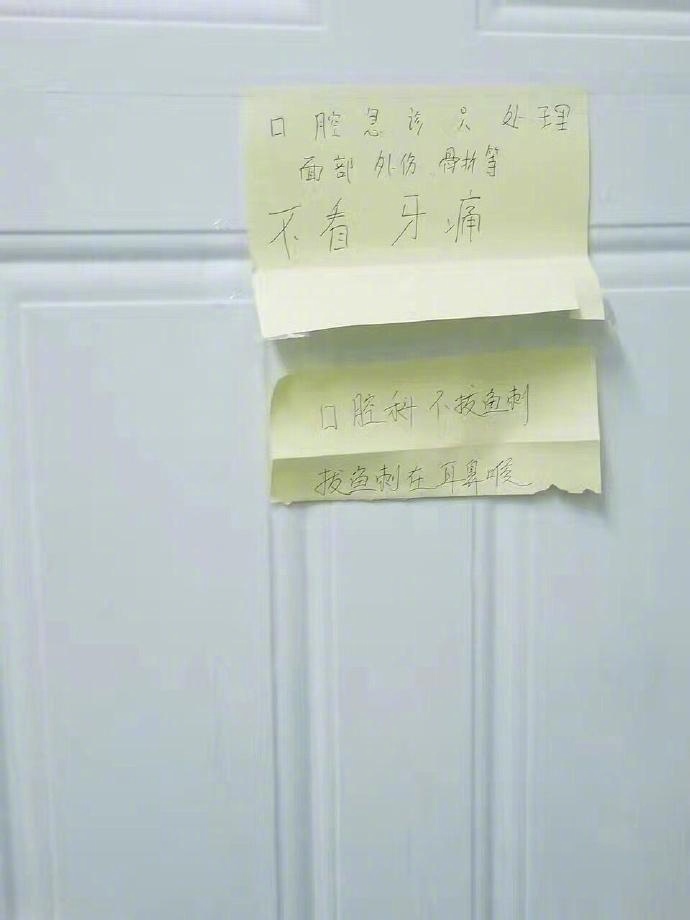 口腔急诊只处理
面部外伤、骨折等
不看牙痛
口腔科不拔鱼刺
拔鱼刺在耳鼻喉